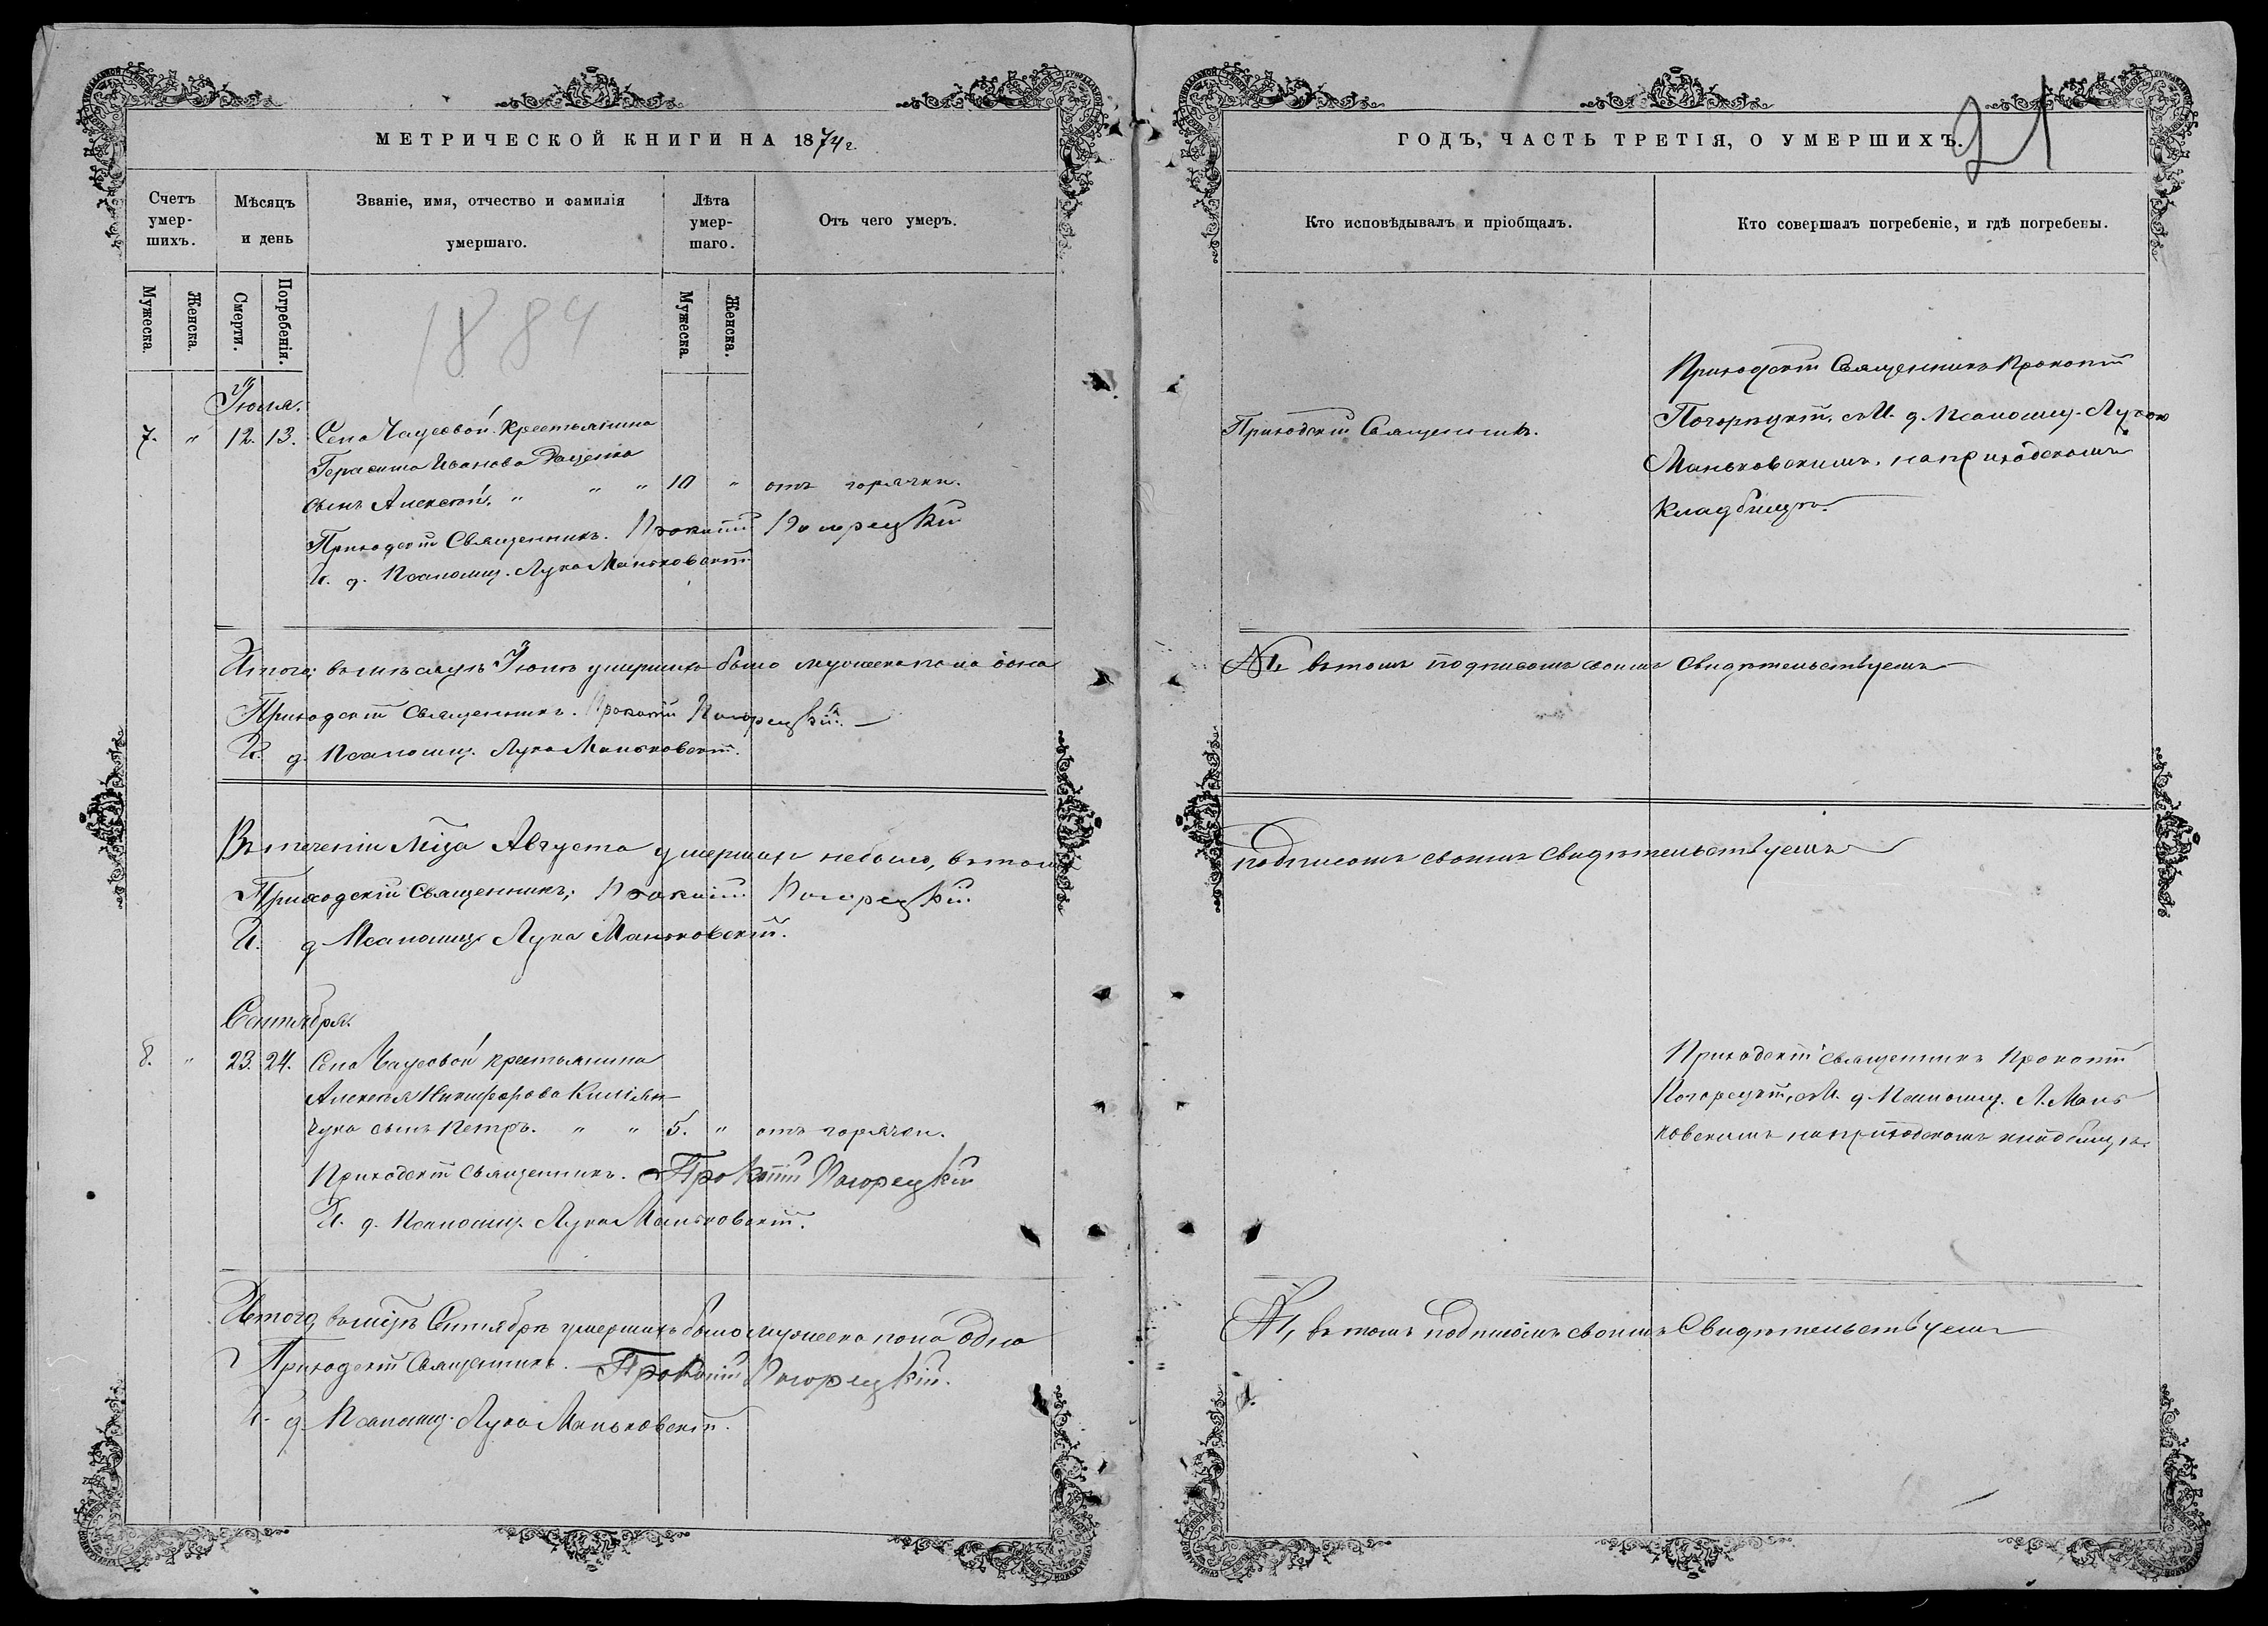 МЕТРИЧЕСКОЙ КНИГИ НА 1874 г.
Счетъ умер-шихъ.
Мѣсяцъ и день
Званіе, имя, отчество и фамилія умершаго.
Лѣта умер-шаго.
Отъ чего умеръ.
Мужеска.
Женска.
Смерти.
Погребенія.
1884
Мужеска
Женска.
Іюля.
7. " 12. 13. Села Чаусовой крестьянина
Герасима Иванова Даценка
сынъ Алексѣй. " " " 10 " отъ горячки.
Приходскій Священникъ. Прокопій Погорецкій
И. д. Псаломщ. Лука Маньковскій
Итого: въ мѣсяцѣ Іюлѣ умершихъ было мужеска пола одна
Приходскій Священникъ. Прокопій Погорецкій.
И. д. Псаломщ. Лука Маньковскій.
Въ теченіи Мѣца Августа умершихъ небыло, въ томъ
Приходскій Священникъ; Прокопій Погорецкій
И. д. Псаломщ. Лука Маньковскій.
Сентября.
8. " 23. 24. Села Чаусовой крестьянина
Алексѣя Никифорова Килімн-
чука сынъ Петръ. " " 5. " отъ горячки.
Приходскій Священникъ. Прокопій Погорецкій
И. д. Псаломщ. Лука Маньковскій.
Итого, въ мцѣ Сентябрѣ умершихъ было мужеска пола одна
Приходскій Священникъ. Прокопій Погорецкій.
И. д. Псаломщ. Лука Маньковскій.
ГОДЪ, ЧАСТЬ ТРЕТІЯ, О УМЕРШИХЪ.
21
Кто исповѣдывалъ и пріобщалъ.
Кто совершалъ погребеніе, и гдѣ погребены.
Приходскій Священникъ.
Приходскій Священникъ Прокопій
Погорецкій, съ И. д. Псаломщ. Лукою
Маньковскимъ, на приходскомъ
кладбищѣ.
№ 1, въ томъ подписомъ своимъ свидѣтельствуемъ
подписомъ своимъ свидѣтельствуемъ
Приходскій священникъ Прокопій
Погорецкій, съ И. д. Псаломщ. Л. Мань
ковскимъ на приходскомъ кладбищѣ.
№ 1, въ томъ подписомъ своимъ Свидѣтельствуемъ